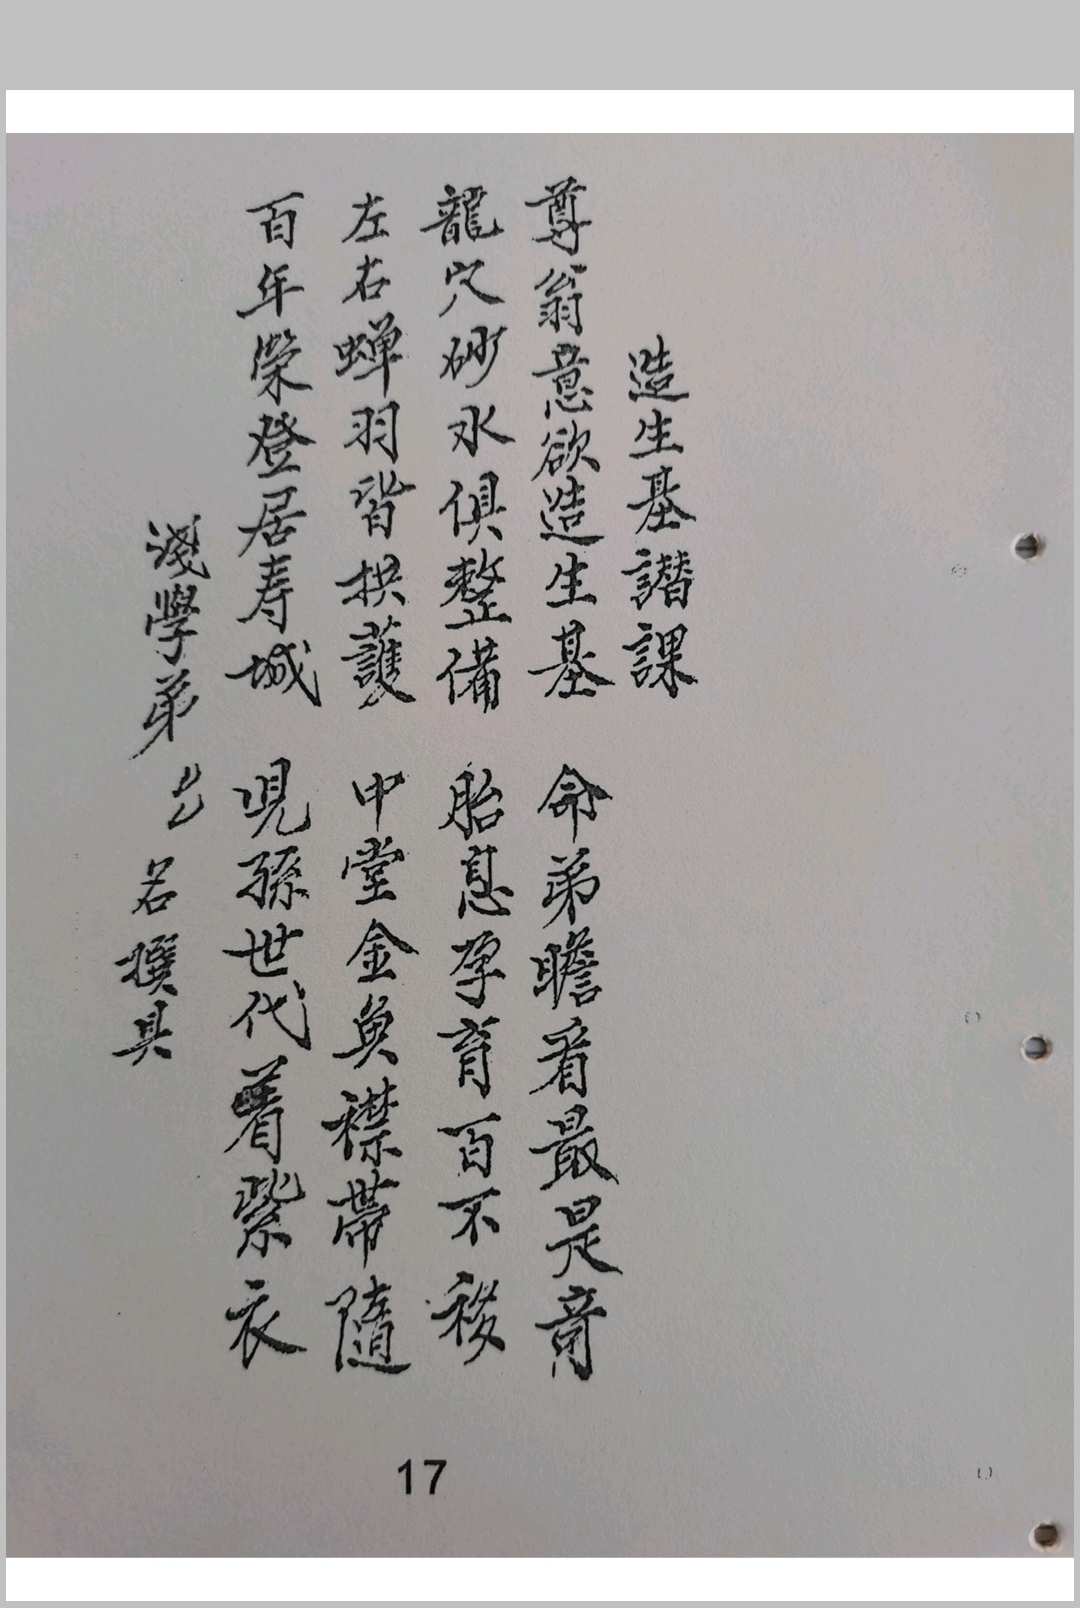 造生基譖課
尊翁意欲造生基 命弟瞻看最是竒
龍穴砂水俱整備 胎息孕育百不移
左右蝉羽皆拱護 中堂金魚襟帶隨
百年榮登居寿城 児孫世代着紫衣
淺學弟 名撰具
17